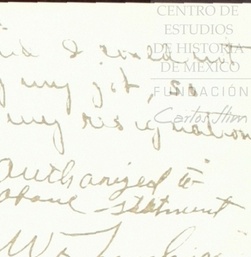 CENTRO DE
ESTUDIOS
DE HISTORIA
DE MEXICO
FUNDACIÓN
Carlos Slim
I could not
my job, so
my resignation
Authorized to
above statment